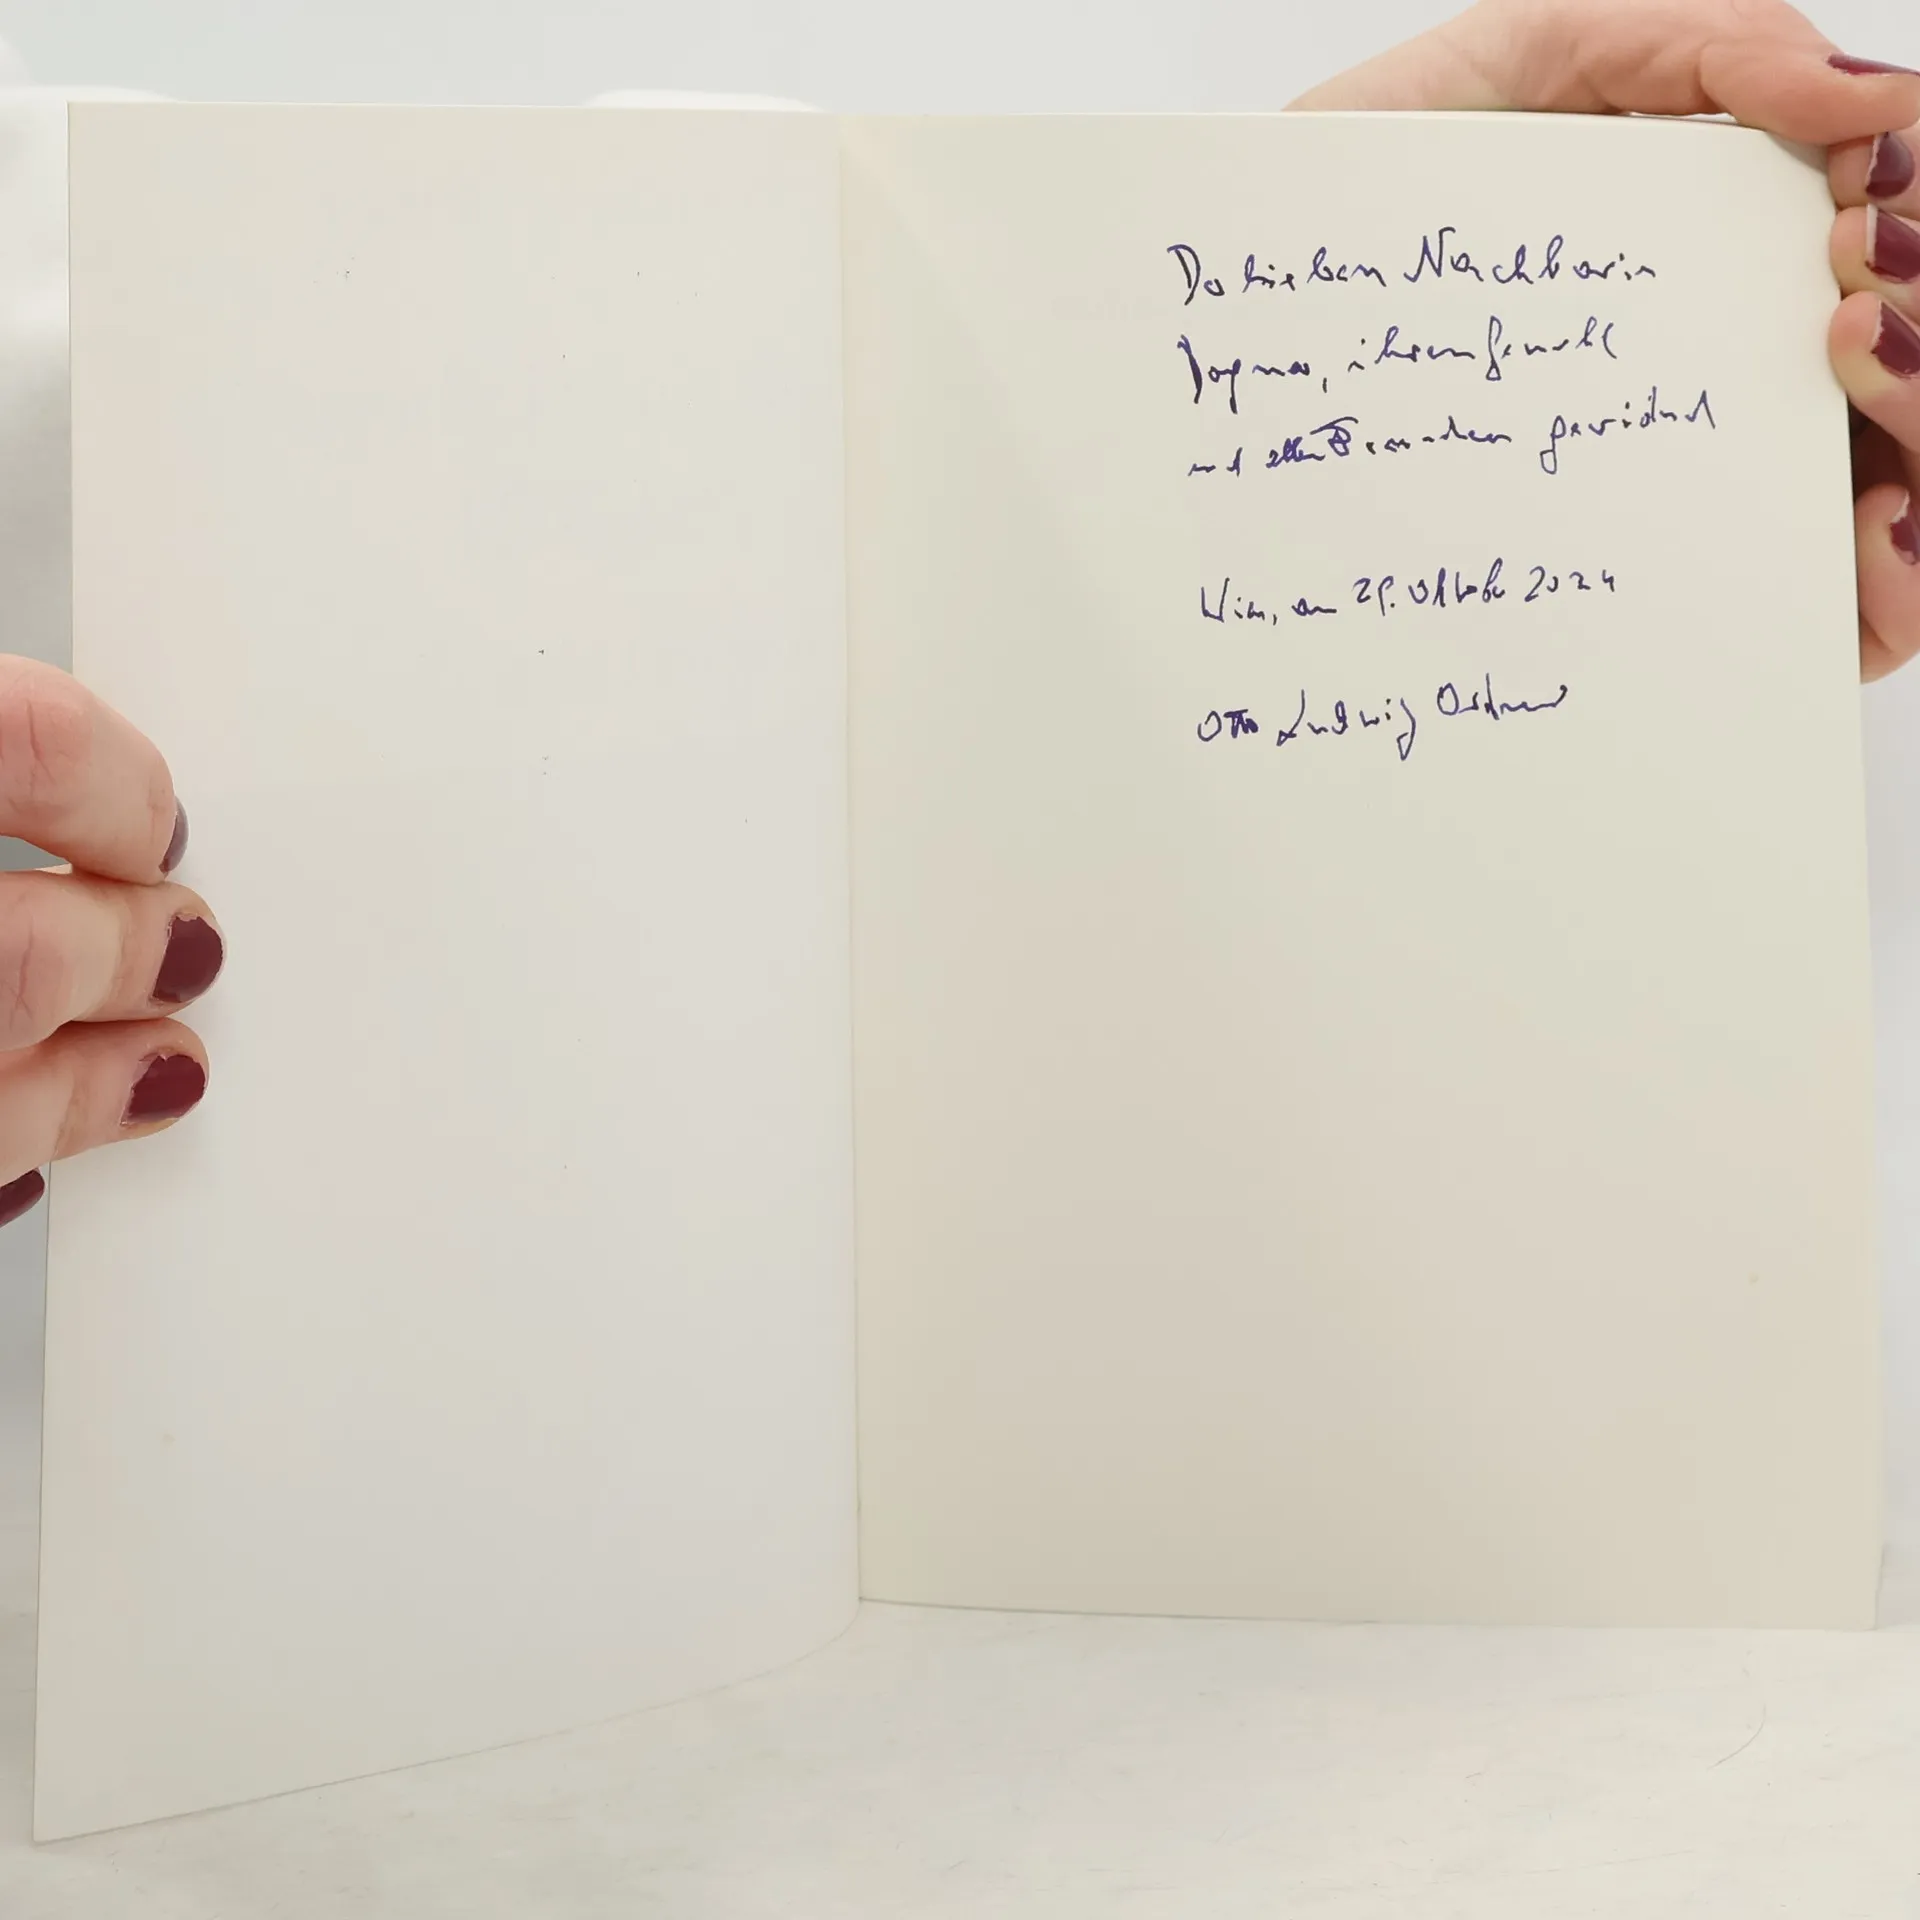 Der lieben Nachbarin
Dagmar, ihrem Gemahl
und allen Freunden gewidmet
Wien, am 29. Oktober 2024
Otto Ludwig Ortner